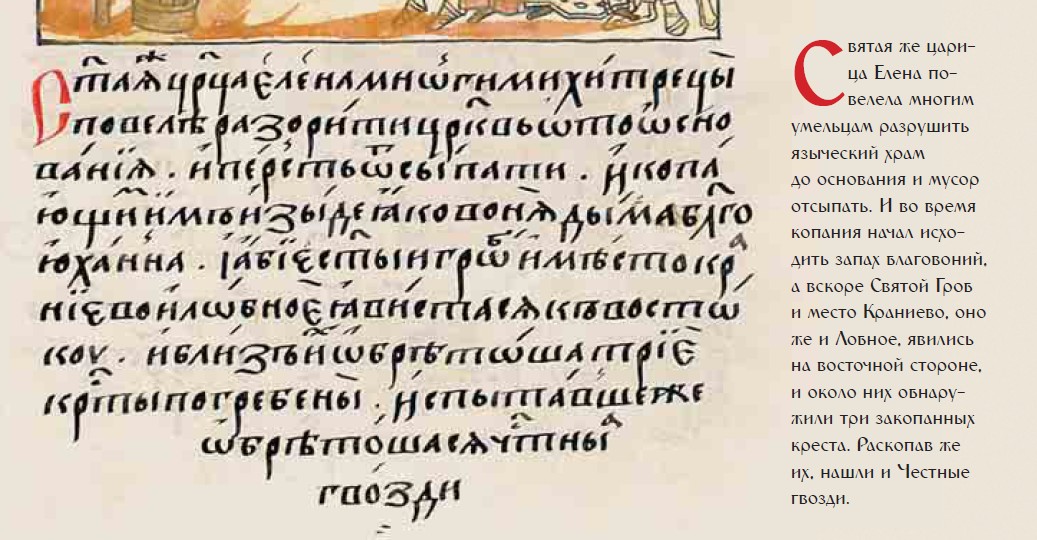 Ст҃аѧ же цр҃ца єле́на мнѡгими хи́трецы̀
повелѣ̀ разори́ти цр҃ковь ѿ ѻ҆снѻ
ва́нїѧ . и҆ пе́рсть ѿсы́пати . и҆ копа́
ю҆щи̑м и҆̀м и҆ и҆зы́де ꙗ҆ко воню̀ ды́ма бл҃го
ю҆ха́ннаго . ꙗ҆́бїе ст҃ы́и гро́б и҆ мѣ́сто кра
нїево и҆ лѡбное ꙗ҆ви́стасѧ къ восто́
коу . и҆ бли́зъ и҆́х ѡ҆брѣто́ша трїѐ
крⷭ҇ты погребены̀ . и҆спыта́вше же
ѡ҆брѣто́шасѧ чⷭ҇тны́ѧ
гво́зди
Святая же цари-
ца Елена по-
велела многим
умельцам разрушить
языческий храм
до основания и мусор
отсыпать. И во время
копания начал исхо-
дить запах благовоний,
а вскоре Святой Гроб
и место Краниево, оно
же и Лобное, явились
на восточной стороне,
и около них обнару-
жили три закопанных
креста. Раскопав же
их, нашли и Честные
гвозди.